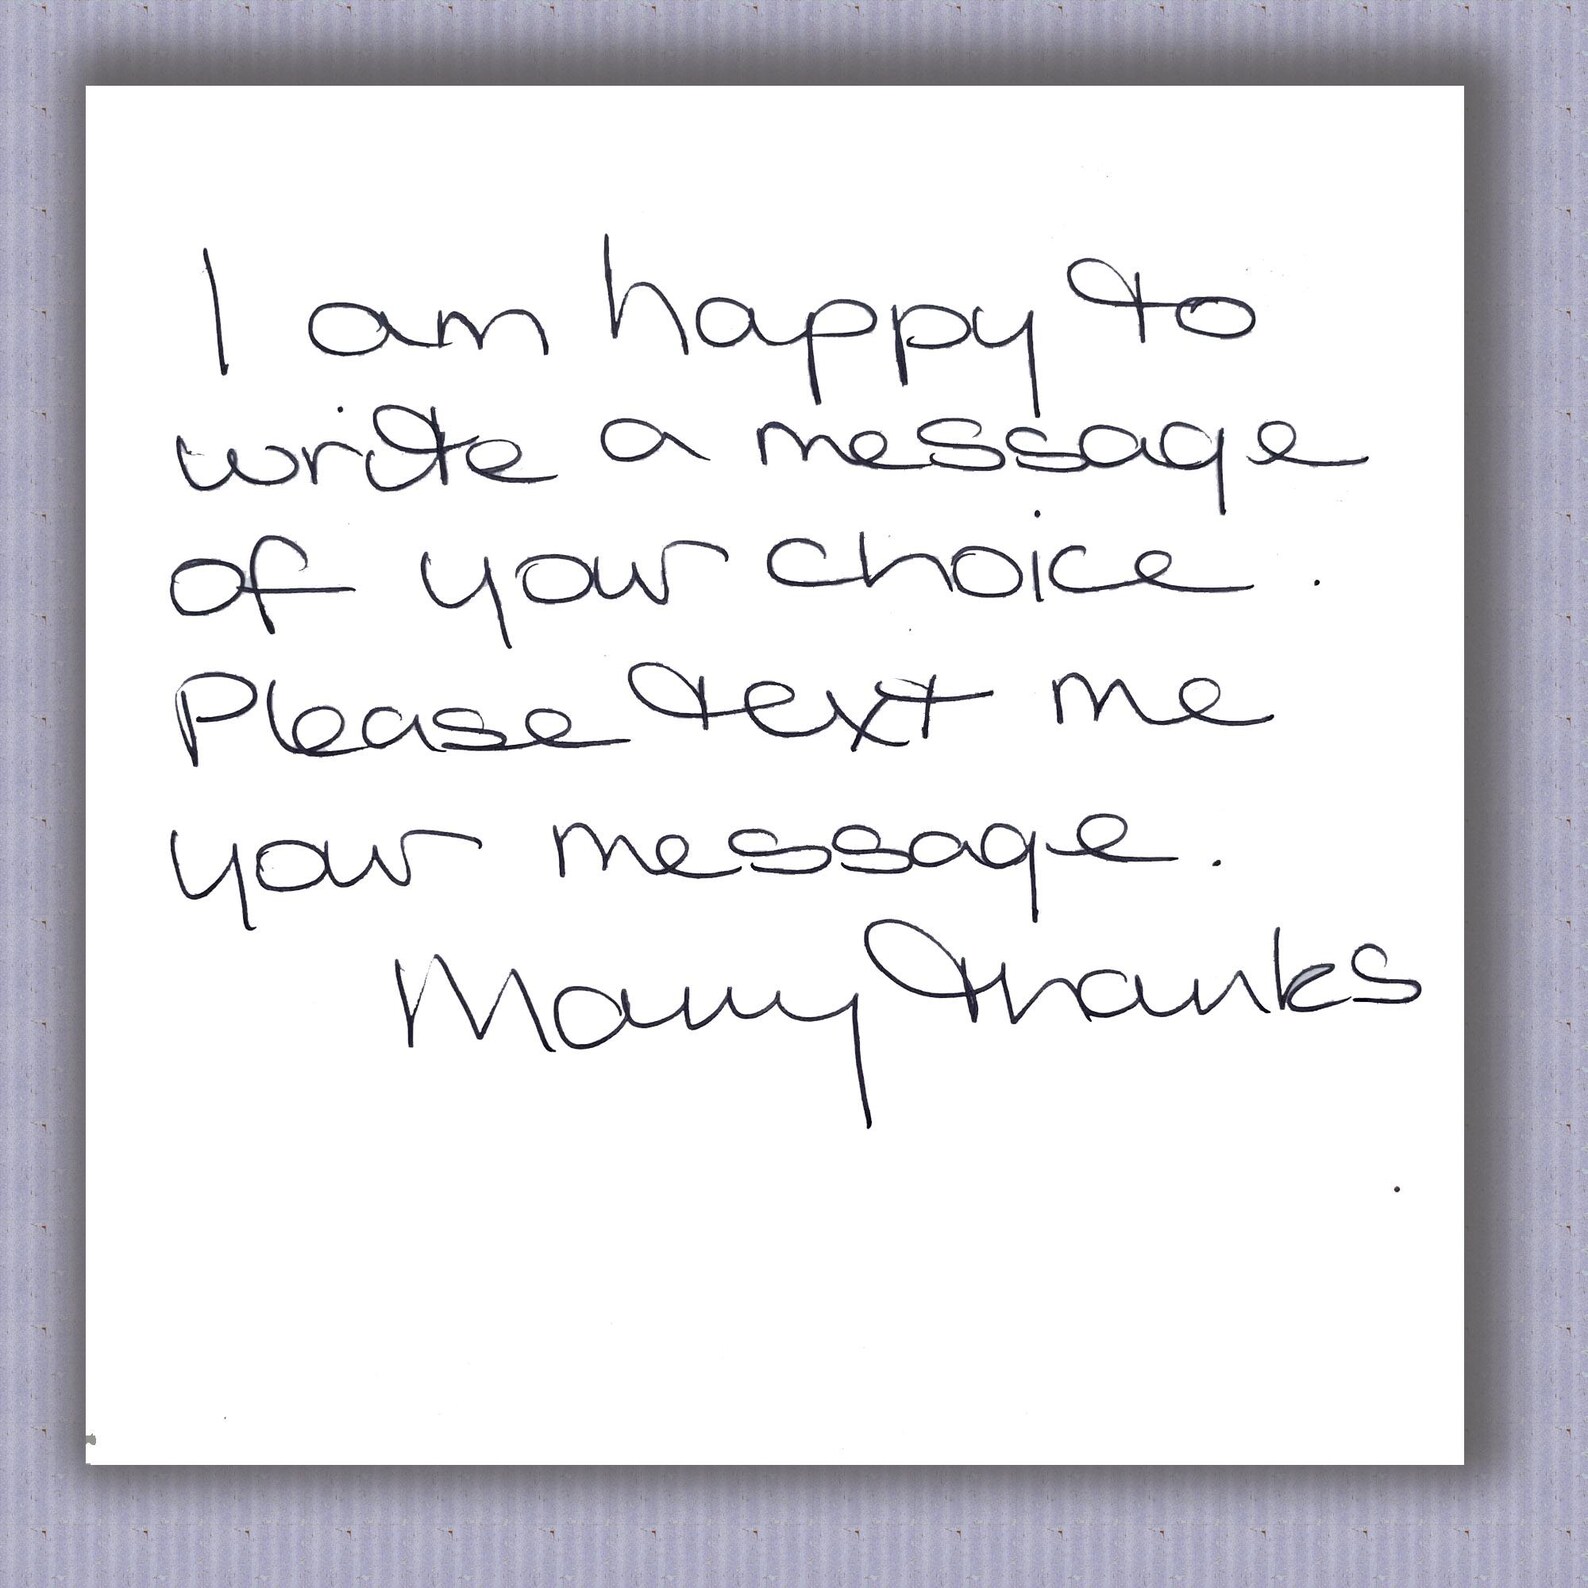 I am happy to
write a message
of your choice.
Please text me
your message.
Many thanks